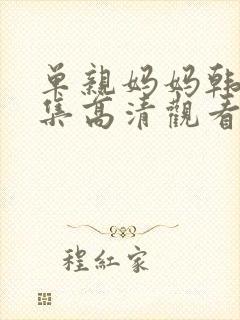 单親妈妈韩
集高清觀看
程紅家